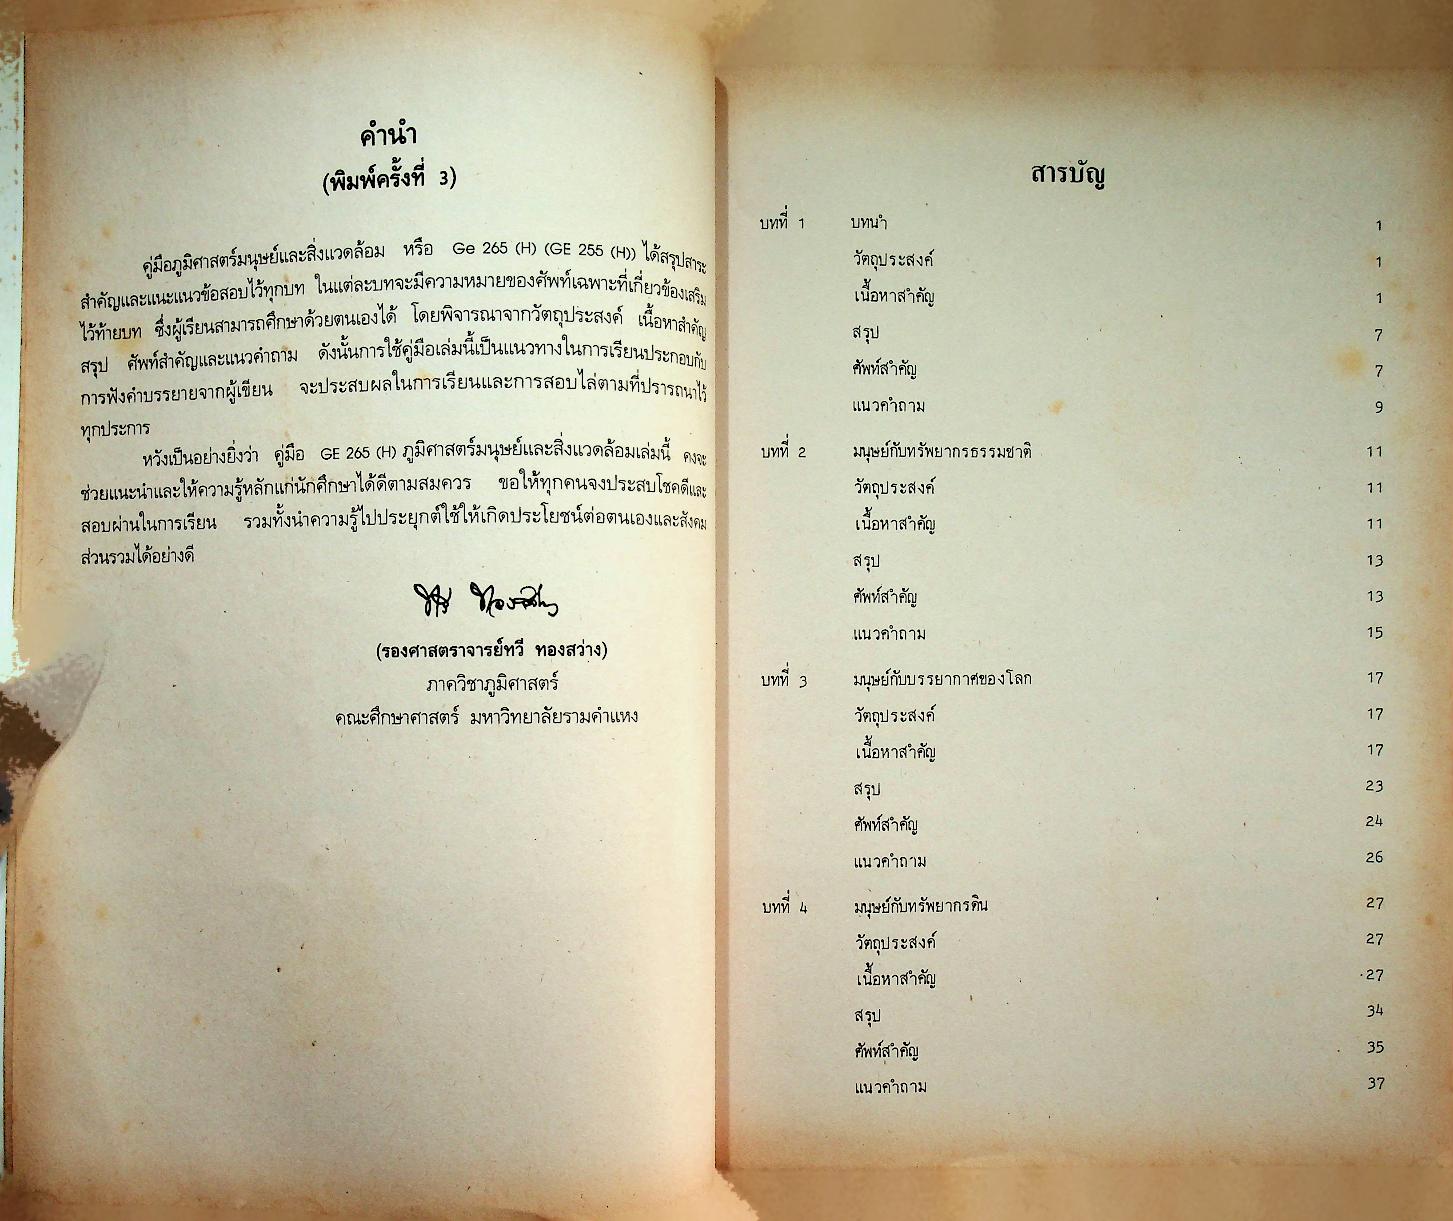 คำนำ
(พิมพ์ครั้งที่ 3)
คู่มือภูมิศาสตร์มนุษย์และสิ่งแวดล้อม หรือ Ge 265 (H) (GE 255 (H)) ได้สรุปสาระ
สำคัญและแนะแนวข้อสอบไว้ทุกบท ในแต่ละบทจะมีความหมายของศัพท์เฉพาะที่เกี่ยวข้องเสริม
ไว้ท้ายบท ซึ่งผู้เรียนสามารถศึกษาด้วยตนเองได้ โดยพิจารณาจากวัตถุประสงค์ เนื้อหาสำคัญ
สรุป ศัพท์สำคัญและแนวคำถาม ดังนั้นการใช้คู่มือเล่มนี้เป็นแนวทางในการเรียนประกอบกับ
การฟังคำบรรยายจากผู้เขียน จะประสบผลในการเรียนและการสอบไล่ตามที่ปรารถนาไว้
ทุกประการ
หวังเป็นอย่างยิ่งว่า คู่มือ GE 265 (H) ภูมิศาสตร์มนุษย์และสิ่งแวดล้อมเล่มนี้ คงจะ
ช่วยแนะนำและให้ความรู้หลักแก่นักศึกษาได้ดีตามสมควร ขอให้ทุกคนจงประสบโชคดีและ
สอบผ่านในการเรียน รวมทั้งนำความรู้ไปประยุกต์ใช้ให้เกิดประโยชน์ต่อตนเองและสังคม
ส่วนรวมได้อย่างดี
ทวี ทองสว่าง
(รองศาสตราจารย์ทวี ทองสว่าง)
ภาควิชาภูมิศาสตร์
คณะศึกษาศาสตร์ มหาวิทยาลัยรามคำแหง
สารบัญ
บทที่ 1 บทนำ 1
วัตถุประสงค์ 1
เนื้อหาสำคัญ 1
สรุป 7
ศัพท์สำคัญ 7
แนวคำถาม 9
บทที่ 2 มนุษย์กับทรัพยากรธรรมชาติ 11
วัตถุประสงค์ 11
เนื้อหาสำคัญ 11
สรุป 13
ศัพท์สำคัญ 13
แนวคำถาม 15
บทที่ 3 มนุษย์กับบรรยากาศของโลก 17
วัตถุประสงค์ 17
เนื้อหาสำคัญ 17
สรุป 23
ศัพท์สำคัญ 24
แนวคำถาม 26
บทที่ 4 มนุษย์กับทรัพยากรดิน 27
วัตถุประสงค์ 27
เนื้อหาสำคัญ 27
สรุป 34
ศัพท์สำคัญ 35
แนวคำถาม 37